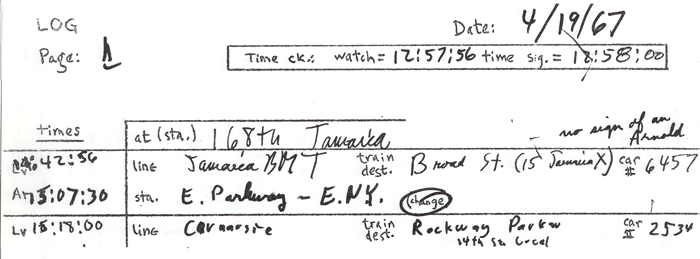 LOG Date: 4/19/67
Page: 1 Time ck.: watch = 12:57:56 time sig. = 12:58:00
times at (sta.) 168th Jamaica no sign of an Arnold
42:56 line Jamaica BMT train dest. Broad St. (15 Jamaica X) car # 6457
Ar 15:07:30 sta. E. Parkway - E.N.Y. change
Lv 15:18:00 line Carnarsie train dest. Rockway Parkw car # 2534
14th St. Local